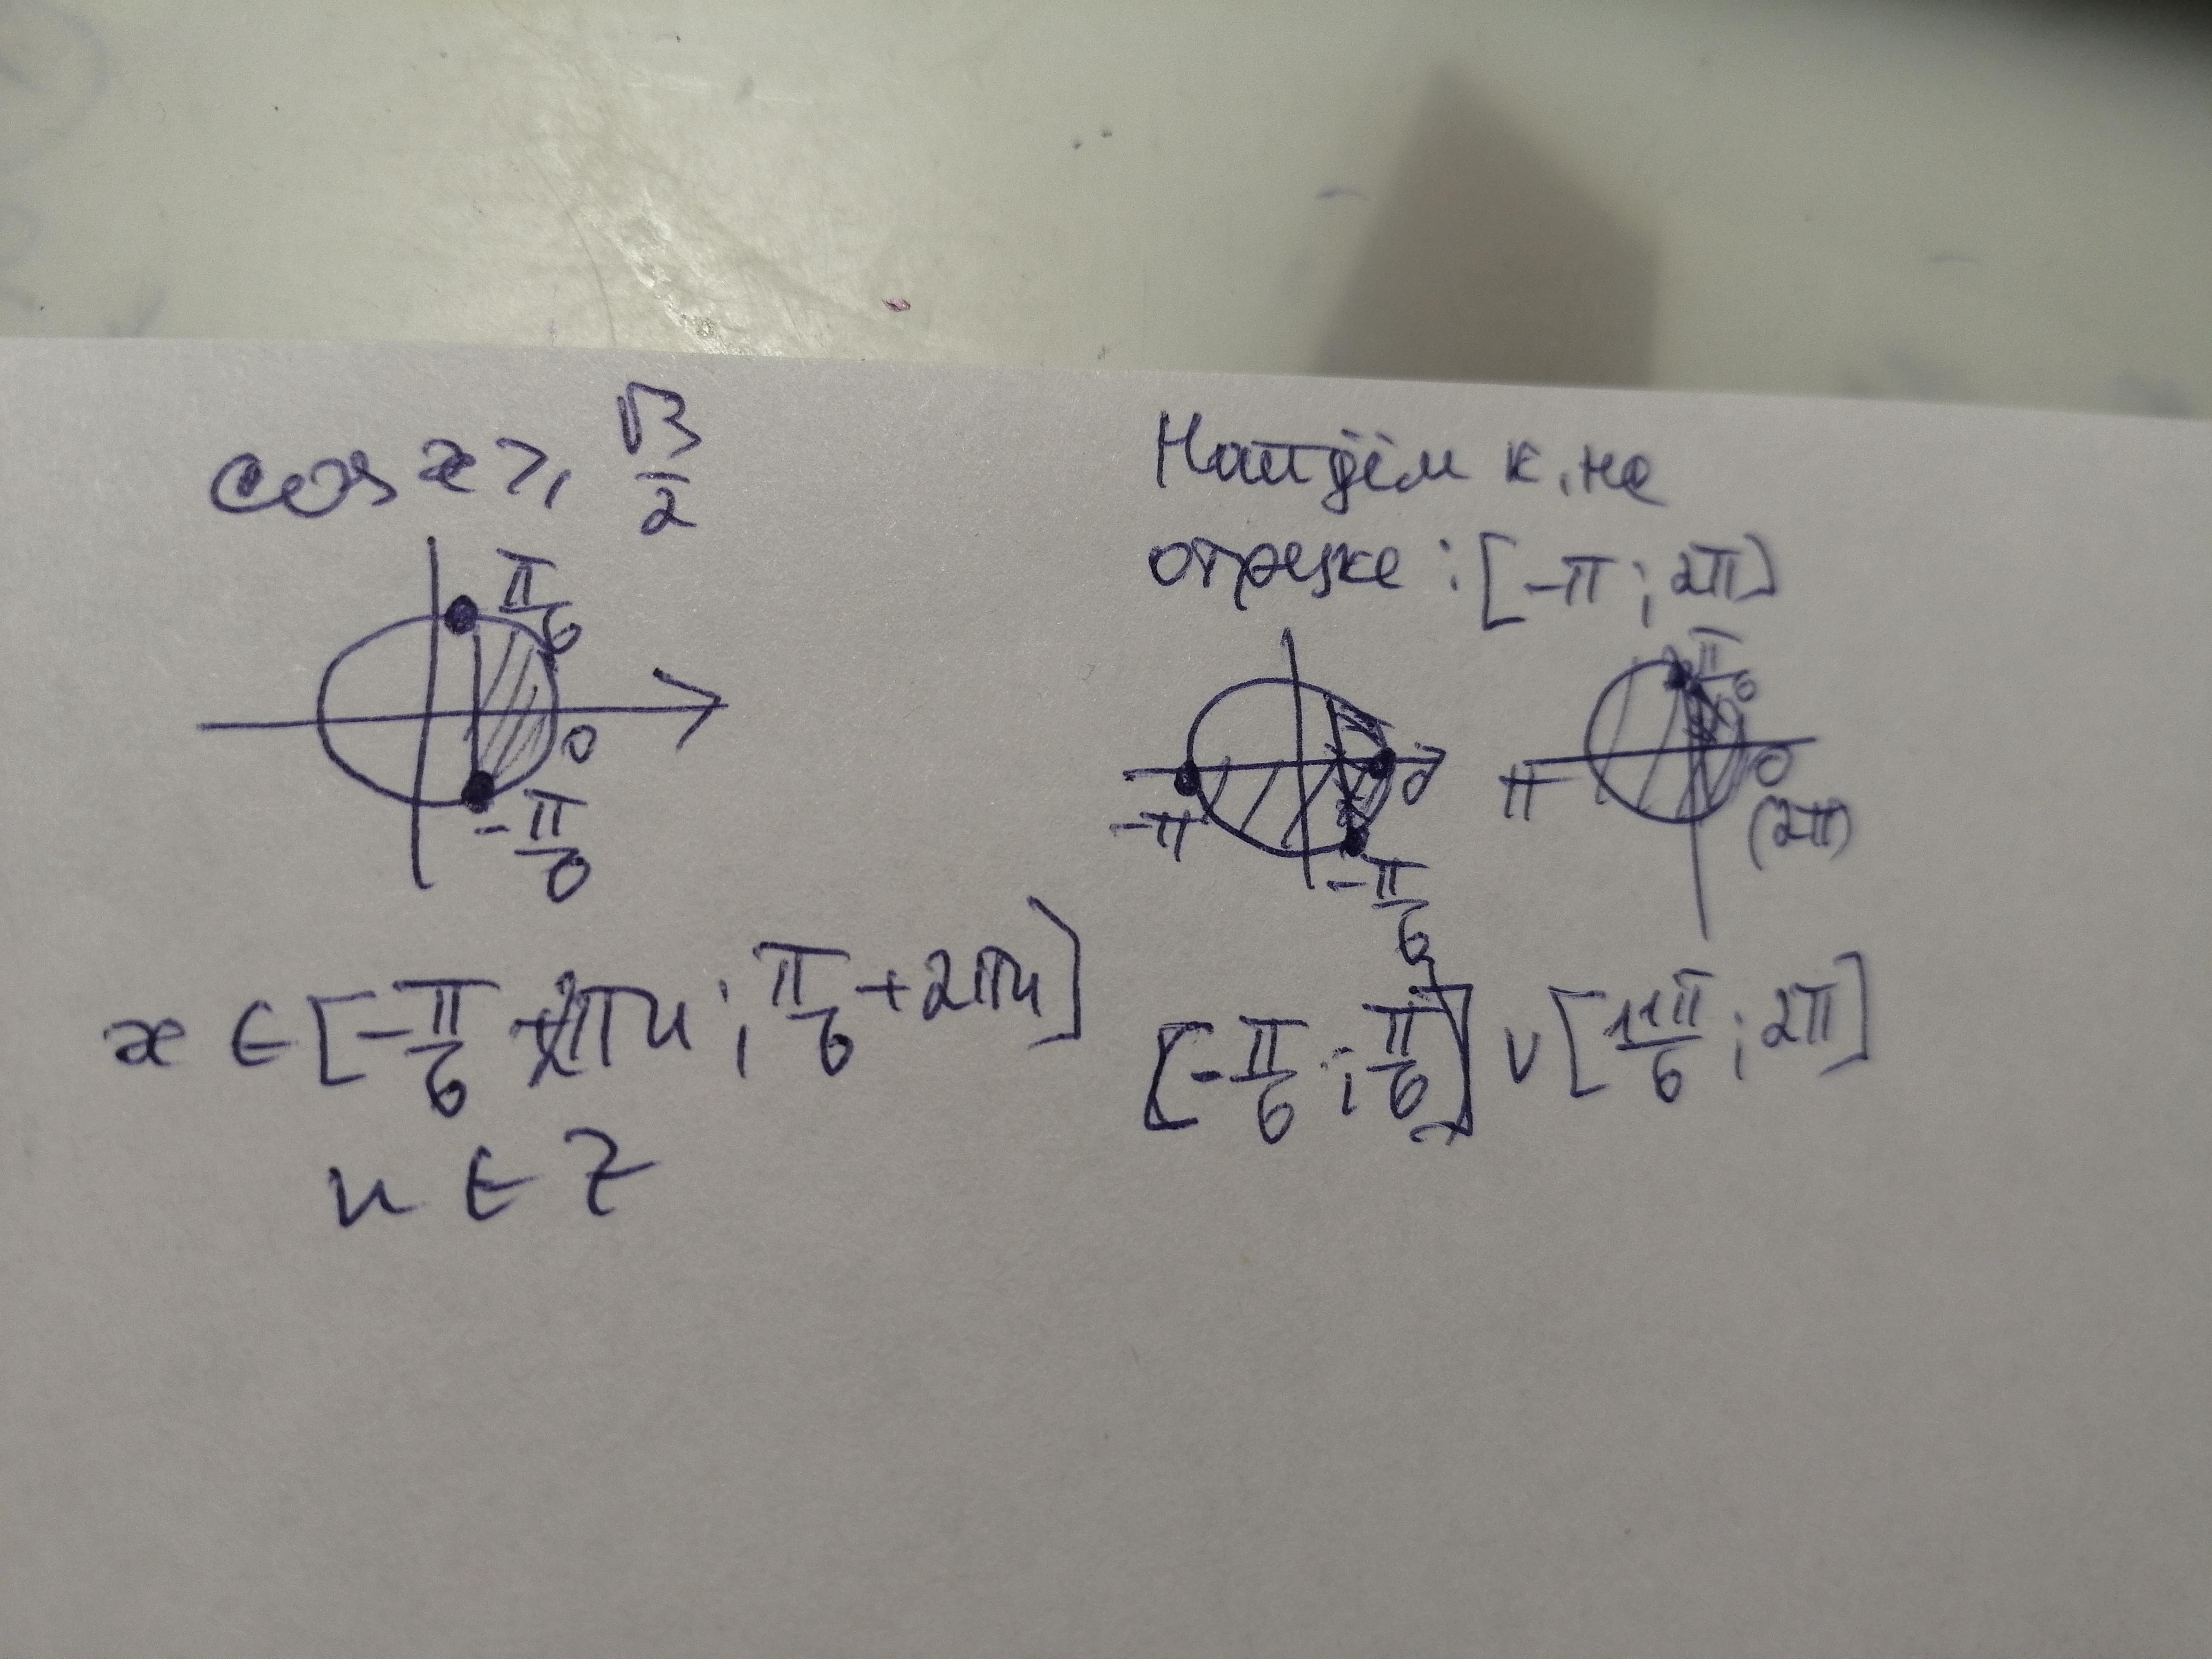 cos x ⩾ √3/2
π/6
0
-π/6
x ∈ [-π/6 + 2πn ; π/6 + 2πn]
n ∈ Z
Найдём к. на
отрезке : [-π ; 2π]
-π
0
-π/6
π/6
π
0
(2π)
[-π/6 ; π/6] ∪ [11π/6 ; 2π]